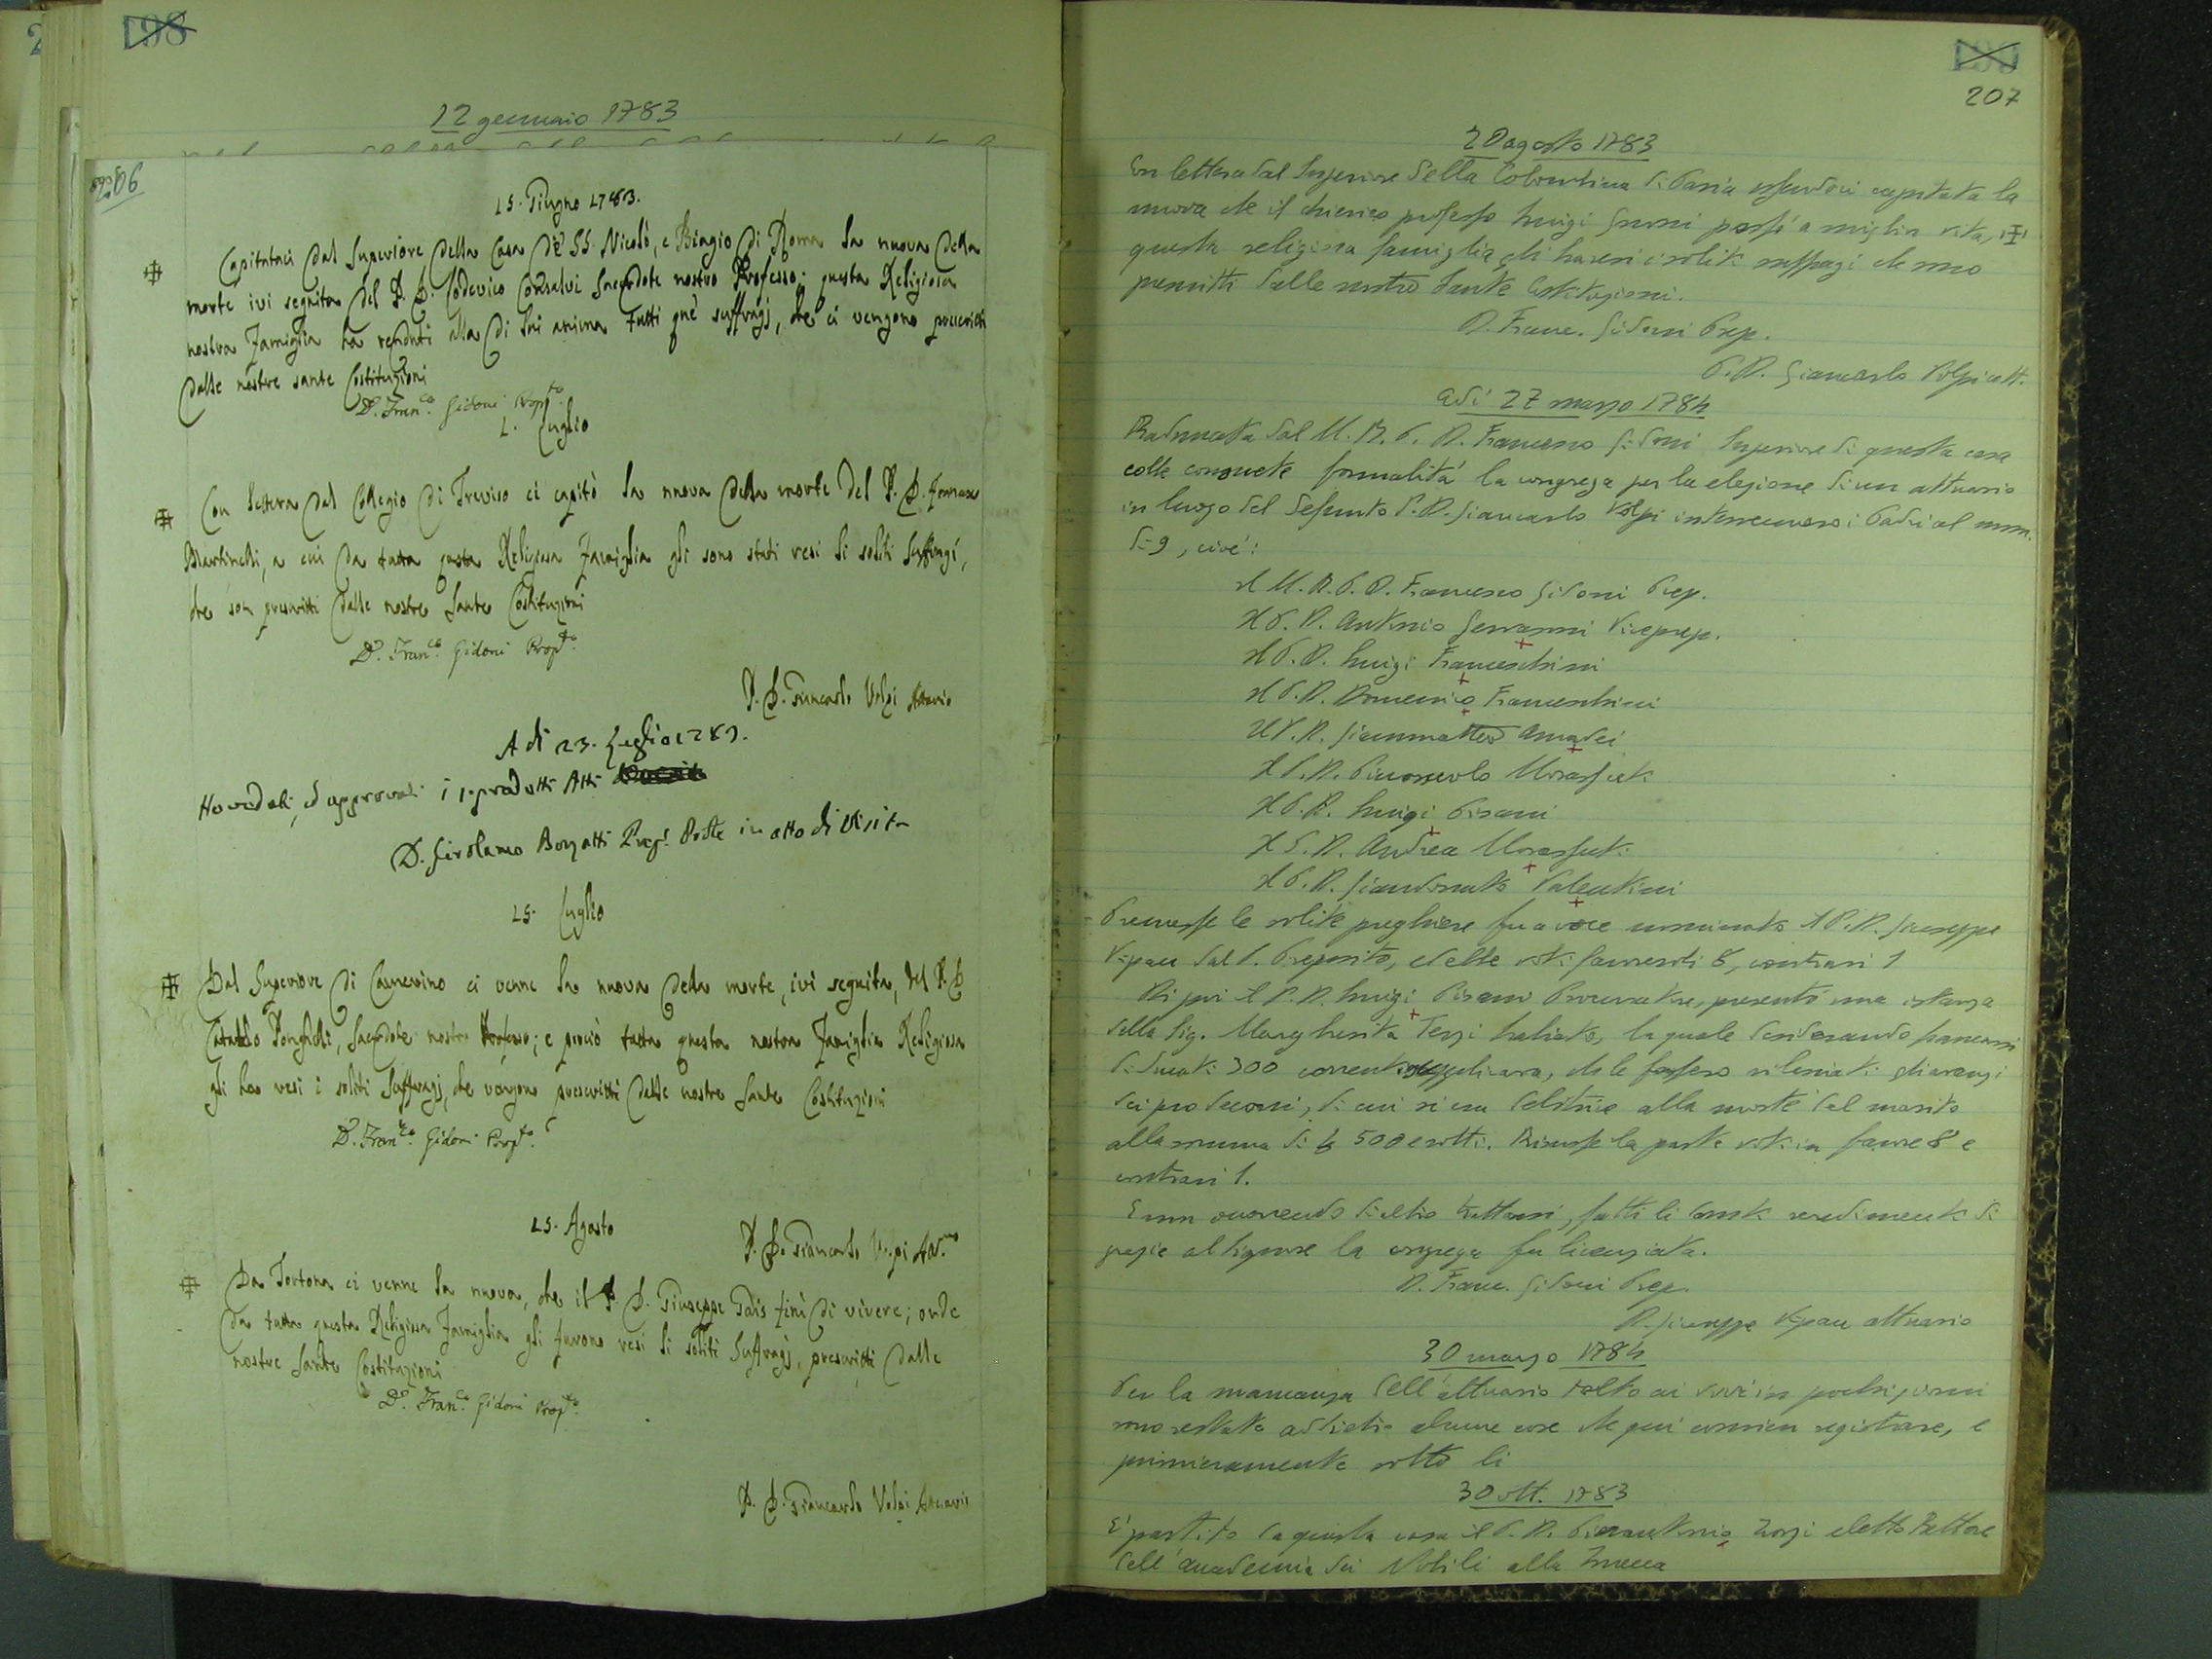 198
12 gennaio 1783
206
15. Giugno 1783.
Capitataci dal Superiore della Casa de' SS. Nicolò, e Biagio di Roma la nuova della
morte ivi seguita del P. D. Lodovico Consalvi Sacerdote nostro Professo; questa Religiosa
nostra Famiglia ha renduti alla di lui anima tutti que' suffragj, che ci vengono prescritti
dalle nostre sante Costituzioni
D. Fran.co Gidoni Prop.to
1. Luglio
Con lettera dal Collegio di Treviso ci capitò la nuova della morte del P. D. Tommaso
Martinelli, a cui da tutta questa Religiosa Famiglia gli sono stati resi li soliti suffragj,
che son prescritti dalle nostre sante Costituzioni
D. Fran.co Gidoni Prop.to
P. D. Giancarlo Volpi Attuario
A dì 23. Luglio 1783.
Ho veduti, ed approvati i sopradetti Atti
D. Girolamo Bonatti Prep. Prole in atto di Visita
25. Luglio
Dal Superiore di Camerino ci venne la nuova della morte, ivi seguita, del P. D.
Cataldo Ponghelli, Sacerdote nostro Professo; e perciò tutta questa nostra Famiglia Religiosa
gli ha resi i soliti suffragj, che vengono prescritti dalle nostre sante Costituzioni
D. Fran.co Gidoni Prop.to
P. D. Giancarlo Volpi Att.rio
15. Agosto
Da Tortona ci venne la nuova, che il P. D. Giuseppe Pais finì di vivere; onde
da tutta questa Religiosa Famiglia gli furono resi li soliti suffragj, prescritti dalle
nostre sante Costituzioni
D. Fran.co Gidoni Prop.to
P. D. Giancarlo Volpi Attuario
199
207
20 agosto 1783
Con lettera dal Superiore della Colombina di Pavia essendoci capitata la
nuova che il chierico professo Luigi passò a miglior vita,
questa religiosa famiglia gli ha resi i soliti suffragi che sono
prescritti dalle nostre Sante Costituzioni.
D. Franc. Gidoni Prep.
P. D. Giancarlo Volpi att.
Adì 27 marzo 1784
Radunata dal M. R. P. D. Francesco Gidoni Superiore di questa casa
colle consuete formalità la congrega per la elezione di un attuario
in luogo del defunto P. D. Giancarlo Volpi intervennero i Padri al num.
di 9, cioè:
Il M. R. P. D. Francesco Gidoni Prep.
Il P. D. Antonio Gervasoni Viceprep.
Il P. D. Luigi Franceschini
Il P. D. Domenico Franceschini
Il P. D. Giammatteo Amadei
Il P. D. Pierpaolo Morassuti
Il P. D. Luigi Pisani
Il P. D. Andrea Morassuti
Il P. D. Giandonato Valentini
Premesse le solite preghiere fu a voce nominato il P. D. Giuseppe
Vipau dal P. Preposito, ed ebbe voti favorevoli 8, contrari 1
Di poi il P. D. Luigi Pisani Procuratore, presentò una istanza
della Sig. Margherita Terzi, la quale desiderando
di ducati 300 correnti supplicava, che le fossero rilasciati gli avanzi
dei pro decorsi, di cui si era debitrice alla morte del marito
alla summa di L 500 e rotti. Riscosse la parte voti in favore 8 e
contrari 1.
E non occorrendo di altro trattarsi, fatti li dovuti rendimenti di
grazie al Signore la congrega fu licenziata.
D. Franc. Gidoni Prep.
D. Giuseppe Vipau attuario
30 marzo 1784
Per la mancanza dell'attuario tolto ai vivi in pochi giorni
sono restate addietro alcune cose che qui convien registrare, e
primieramente sotto li
30 ott. 1783
E' partito da questa casa il P. D. Pierantonio Zorzi eletto Rettore
dell'Accademia dei Nobili alla Zuecca